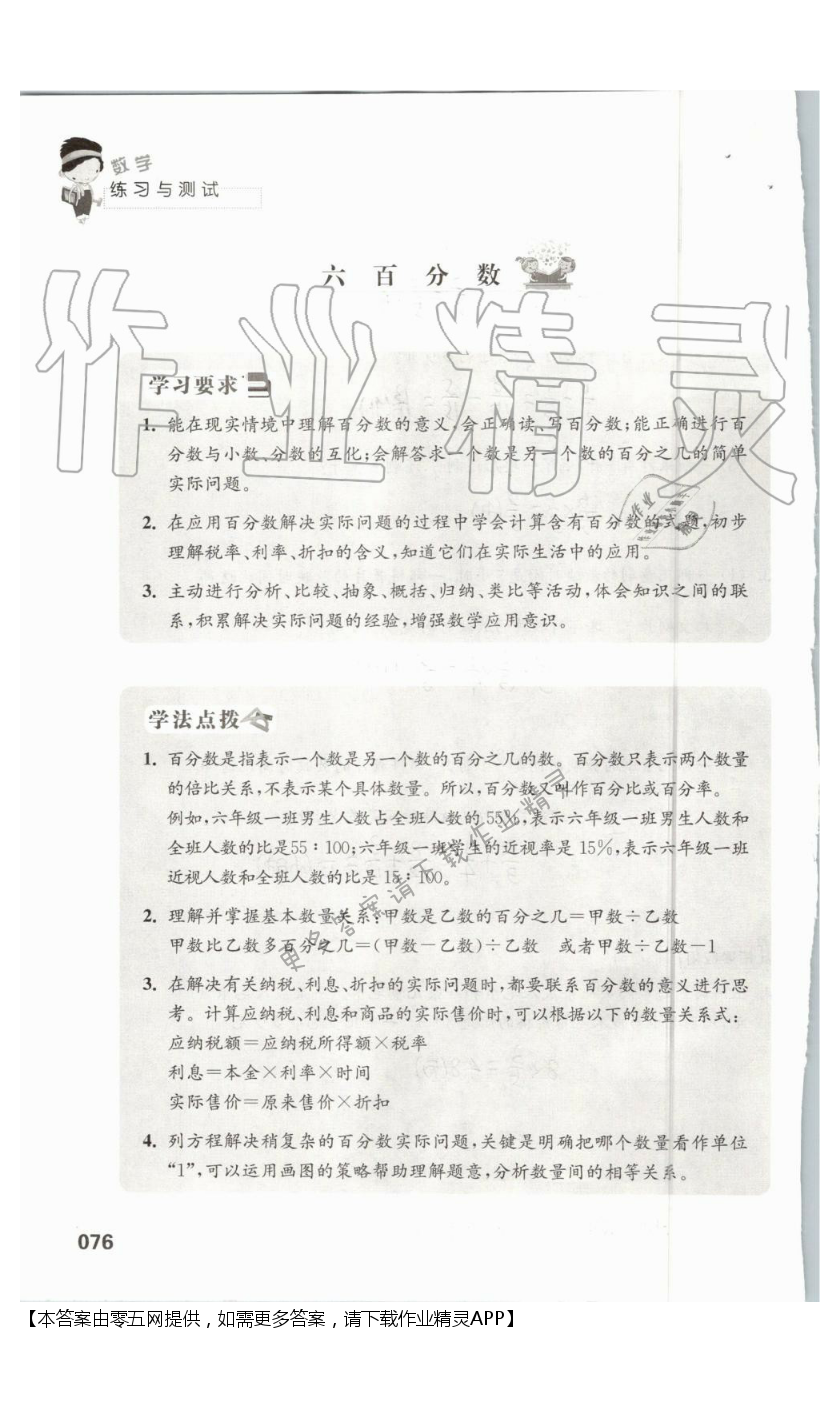 数学
练习与测试
六 百 分 数
作业精灵
学习要求
1. 能在现实情境中理解百分数的意义,会正确读、写百分数;能正确进行百
分数与小数、分数的互化;会解答求一个数是另一个数的百分之几的简单
实际问题。
2. 在应用百分数解决实际问题的过程中学会计算含有百分数的式题,初步
理解税率、利率、折扣的含义,知道它们在实际生活中的应用。
3. 主动进行分析、比较、抽象、概括、归纳、类比等活动,体会知识之间的联
系,积累解决实际问题的经验,增强数学应用意识。
作业
精灵
学法点拨
1. 百分数是指表示一个数是另一个数的百分之几的数。百分数只表示两个数量
的倍比关系,不表示某个具体数量。所以,百分数又叫作百分比或百分率。
例如,六年级一班男生人数占全班人数的 55%,表示六年级一班男生人数和
全班人数的比是55∶100;六年级一班学生的近视率是 15%,表示六年级一班
近视人数和全班人数的比是 15∶100。
2. 理解并掌握基本数量关系:甲数是乙数的百分之几=甲数÷乙数
甲数比乙数多百分之几=(甲数-乙数)÷乙数 或者甲数÷乙数-1
3. 在解决有关纳税、利息、折扣的实际问题时,都要联系百分数的意义进行思
考。计算应纳税、利息和商品的实际售价时,可以根据以下的数量关系式:
应纳税额=应纳税所得额×税率
利息=本金×利率×时间
实际售价=原来售价×折扣
4. 列方程解决稍复杂的百分数实际问题,关键是明确把哪个数量看作单位
“1”,可以运用画图的策略帮助理解题意,分析数量间的相等关系。
更多答案请下载作业精灵
076
【本答案由零五网提供，如需更多答案，请下载作业精灵APP】